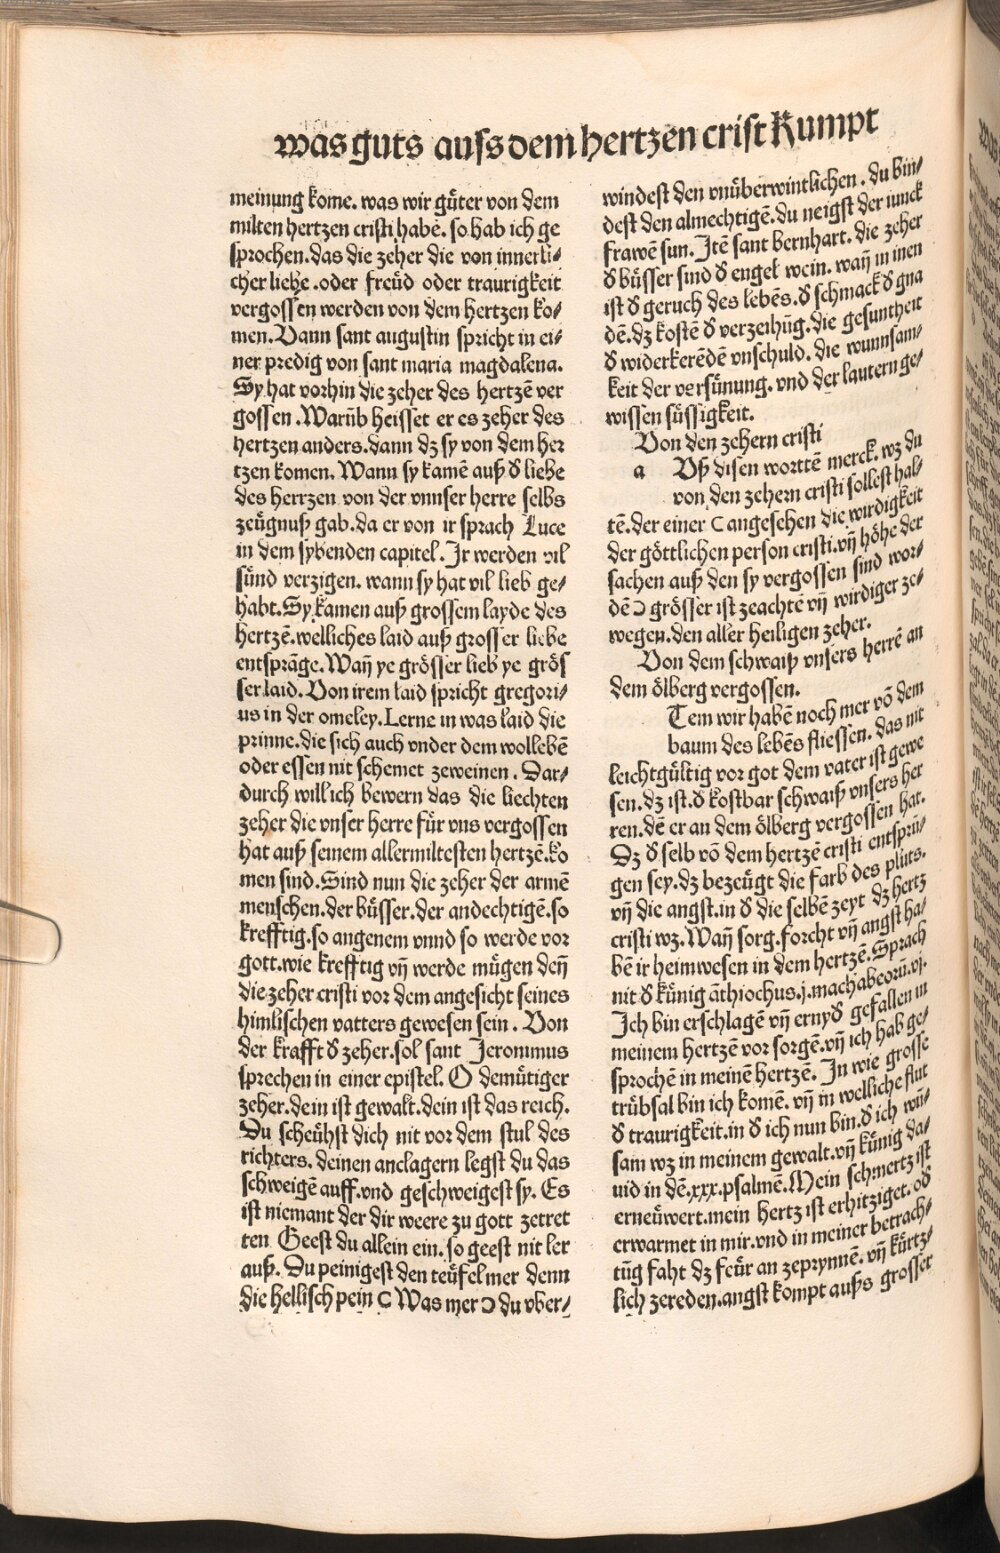 was guts auſs dem hertzen criſt kumpt
meinung kome. was wir guͤter von dem
milten hertzen criſti habē. ſo hab ich ge
ſprochen. das die zeher die von innerli⸗
cher liebe. oder freüd oder traurigkeit
vergoſſen werden von dem hertzen ko⸗
men. Vann sant auguſtin ſpricht in ei⸗
ner predig von ſant maria magdalena.
Sy hat vorhin die zeher des hertzē ver
goſſen. Warūb heiſſet er es zeher des
hertzen anders. dann dz ſy von dem her
tzen komen. Wann ſy kamē auß ď liebe
des hertzen von der vnnſer herre ſelbs
zeügnuß gab. da er von ir ſprach Luce
in dem ſybenden capitel. Ir werden vil
ſünd verzigen. wann ſy hat vil lieb ge⸗
habt. Sy kamen auß groſſem layde des
hertzē. welliches laid auß groſſer liebe
entſprāge. Wañ ye gröſſer lieb ye gröſ
ſer laid. Von irem laid ſpricht gregori⸗
us in der omeley. Lerne in was laid die
prinne. die ſich auch vnder dem wollebē
oder eſſen nit ſchemet zeweinen. Dar⸗
durch will ich bewern das die liechten
zeher die vnſer herre für vns vergoſſen
hat auß ſeinem allermilteſten hertzē. ko
men ſind. Sind nun die zeher der armē
menſchen. der büſſer. der andechtigē. ſo
krefftig. ſo angenem vnnd ſo werde vor
gott. wie krefftig vñ werde mügen deñ
die zeher criſti vor dem angeſicht ſeines
himliſchen vatters geweſen ſein. Von
der krafft ď zeher. ſol ſant Jeronimus
ſprechen in einer epiſtel. O demütiger
zeher. dein iſt gewalt. dein iſt das reich.
Du ſcheühſt dich nit vor dem ſtul des
richters. deinen anclagern legſt du das
ſchweigē auff. vnd geſchweigeſt ſy. Es
iſt niemant der dir weere zu gott zetret
ten. Geeſt du allein ein. ſo geeſt nit ler
auß. Du peinigeſt den teüfel mer denn
die helliſch pein ( Was mer ) du vber⸗
windeſt den vnüberwintlichen. du bin⸗
deſt den almechtigē. du neigſt der iunck
frawē ſun. Itē ſant bernhart. die zeher
ď büſſer ſind ď engel wein. wañ in inen
iſt ď geruch des lebēs. ď ſchmack ď gna
dē. dz koſtē ď verzeihūg. die geſuntheit
ď widerkerēdē vnſchuld. die wunnſam⸗
keit der verſünung. vnd der lautern ge⸗
wiſſen ſüſſigkeit.
Von den zehern criſti
a Vß diſen worttē merck. wz du
von den zehern criſti ſolleſt hal⸗
tē. der einer ( angeſehen die wirdigkeit
der göttlichen perſon criſti. vñ höhe der
ſachen auß den ſy vergoſſen ſind wor⸗
dē ) gröſſer iſt zeachtē vñ wirdiger ze⸗
wegen. den aller heiligen zeher.
Von dem ſchwaiß vnſers herrē an
dem ölberg vergoſſen.
Tem wir habē noch mer vō dem
baum des lebēs flieſſen. das nit
leichtgültig vor got dem vater iſt gewe
ſen. dz iſt. ď koſtbar ſchwaiß vnſers her
ren. dē er an dem ölberg vergoſſen hat.
Dz ď ſelb vō dem hertzē criſti entſprū⸗
gen ſey. dz bezeügt die farb des pluts.
vñ die angſt. in ď die ſelbē zeyt dz hertz
criſti wz. Wañ ſorg. forcht vñ angſt ha⸗
bē ir heimweſen in dem hertzē. Sprach
nit ď künig āthiochus. j. machabeorū. vj.
Ich bin erſchlagē vñ ernyď gefallen in
meinem hertzē vor ſorgē. vñ ich hab ge⸗
ſprochē in meinē hertzē. In wie groſſe
trübſal bin ich komē. vñ in welliche flut
ď traurigkeit. in ď ich nun bin. ď ich wū⸗
ſam wz in meinem gewalt. vñ künig da⸗
uid in dē. xxx. pſalmē. Mein ſchmertz iſt
erneüwert. mein hertz iſt erhitziget. oď
erwarmet in mir. vnd in meiner betrach⸗
tūg faht dz feür an zeprynnē. vñ kürtz⸗
lich zereden. angſt kompt auſs groſſer